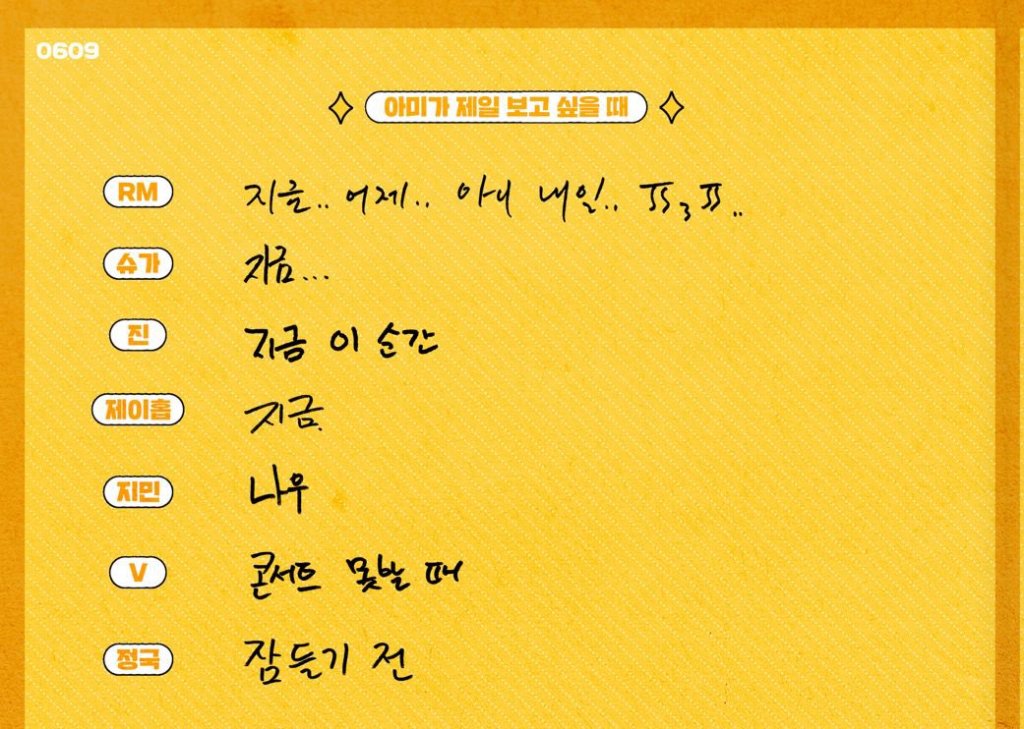 0609
아미가 제일 보고 싶을 때
RM 지금.. 어제.. 아니 내일!.. ㅠㅠ
슈가 지금...
진 지금 이 순간
제이홉 지금.
지민 나우
V 콘서트 못할 때
정국 잠들기 전